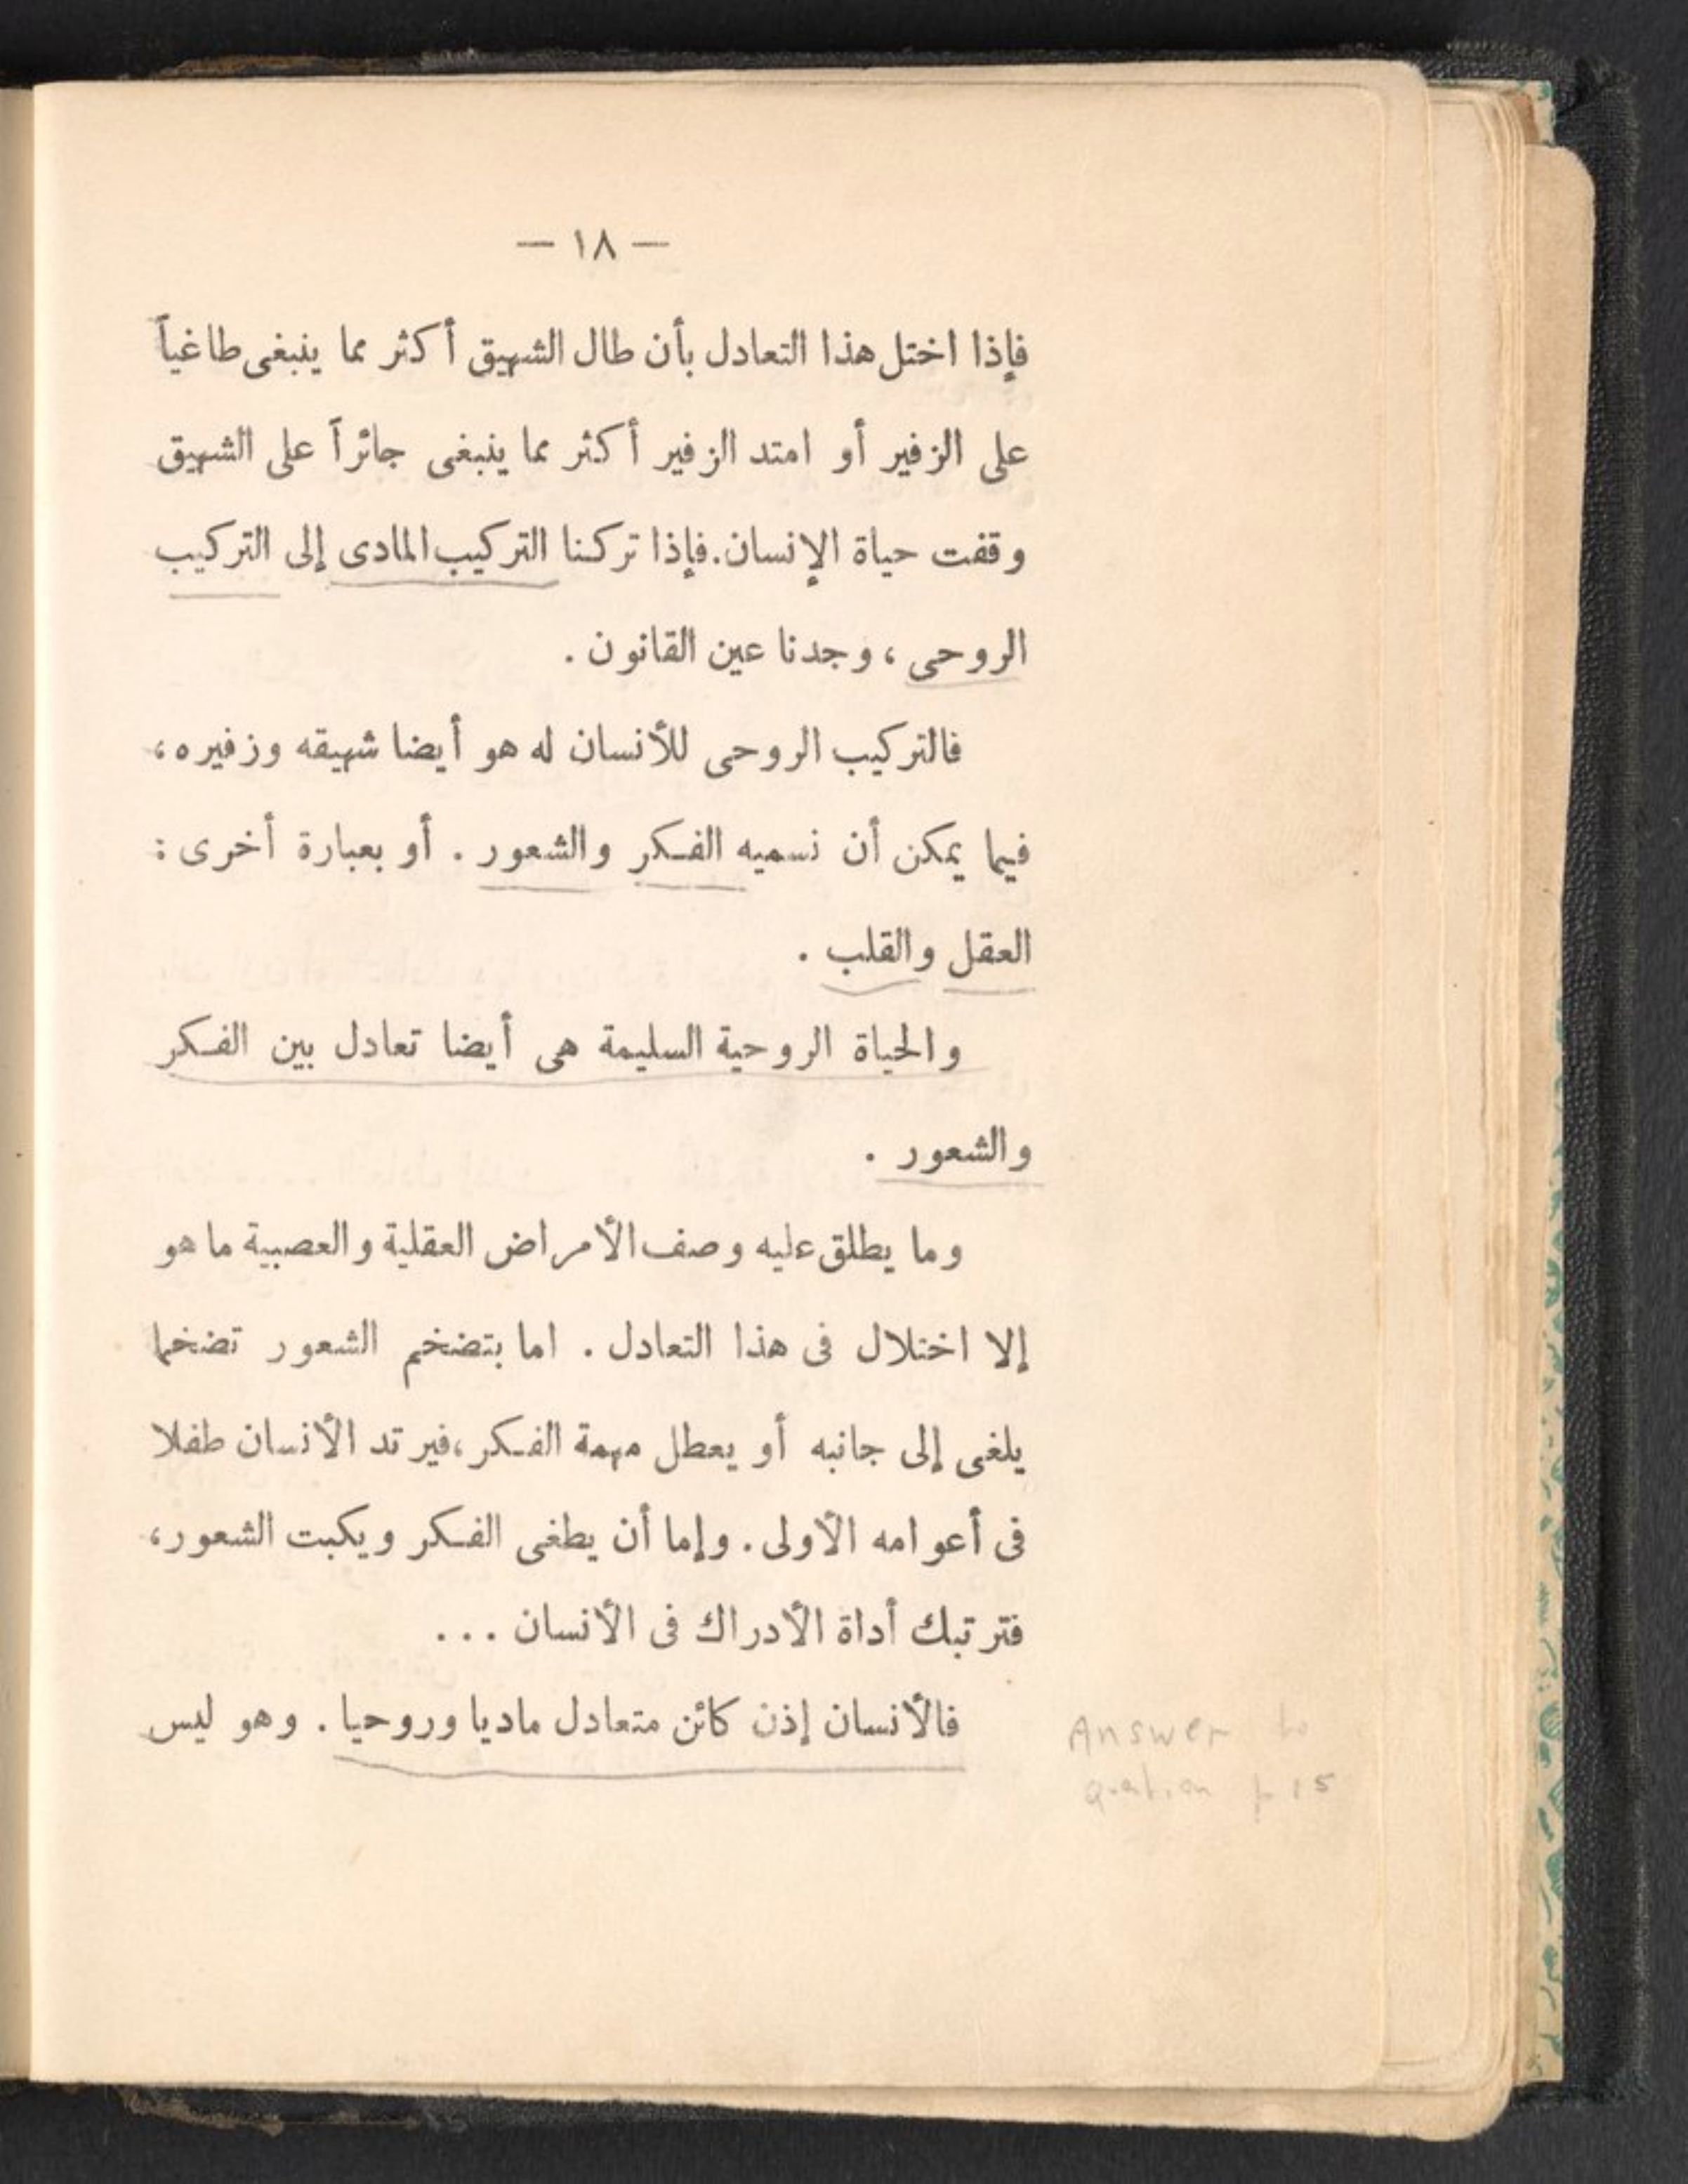 — ١٨ —
فإذا اختل هذا التعادل بأن طال الشهيق أكثر مما ينبغى طاغياً
على الزفير أو امتد الزفير أكثر مما ينبغى جائراً على الشهيق
وقفت حياة الإنسان. فإذا تركنا التركيب المادى إلى التركيب
الروحى ، وجدنا عين القانون .
فالتركيب الروحى للأنسان له هو أيضا شهيقه وزفيره ،
فيما يمكن أن نسميه الفكر والشعور . أو بعبارة أخرى :
العقل والقلب .
والحياة الروحية السليمة هى أيضا تعادل بين الفكر
والشعور .
وما يطلق عليه وصف الأمراض العقلية والعصبية ما هو
إلا اختلال فى هذا التعادل . اما بتضخم الشعور تضخما
يلغى إلى جانبه أو يعطل مهمة الفكر ، فيرتد الأنسان طفلا
فى أعوامه الأولى . وإما أن يطغى الفكر ويكبت الشعور ،
فترتبك أداة الأدراك فى الأنسان ...
فالأنسان إذن كائن متعادل ماديا وروحيا . وهو ليس
Answer to
question p 15